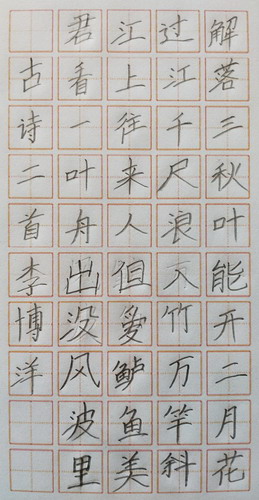 解落三秋叶能开二月花
过江千尺浪入竹万竿斜
江上往来人但爱鲈鱼美
君看一叶舟出没风波里
古诗二首李博洋